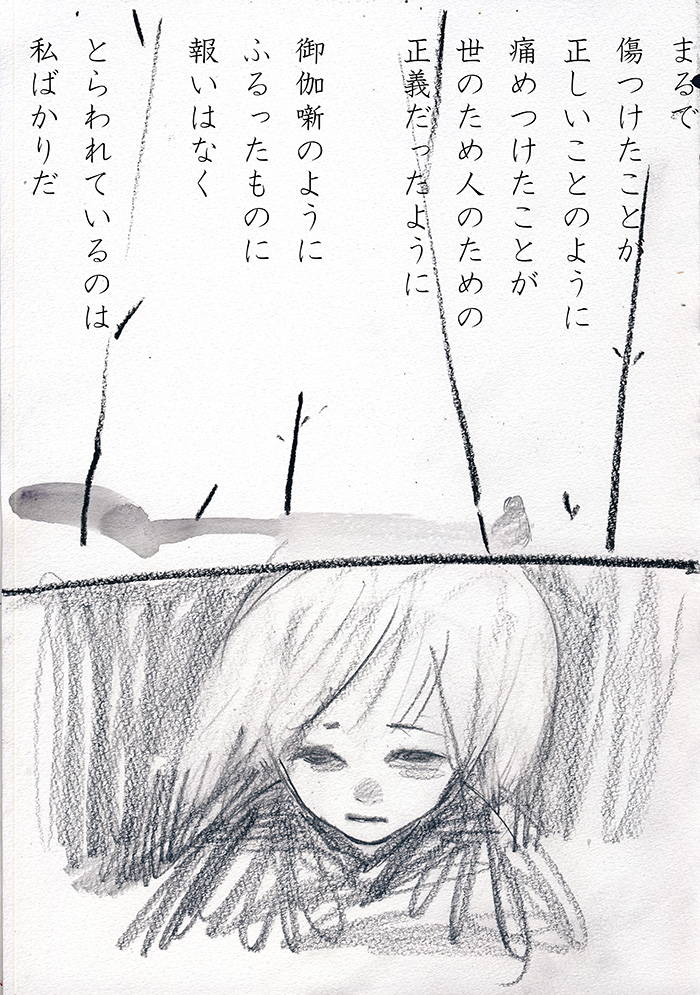 まるで
傷つけたことが
正しいことのように
痛めつけたことが
世のため人のための
正義だったように
御伽噺のように
ふるったものに
報いはなく
とらわれているのは
私ばかりだ